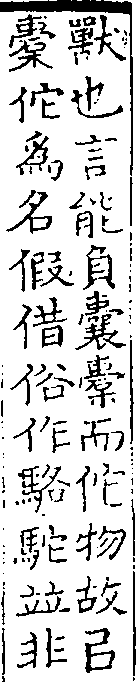 獸也言能負囊橐而佗物故㠯
橐佗爲名假借俗作駱駝竝非